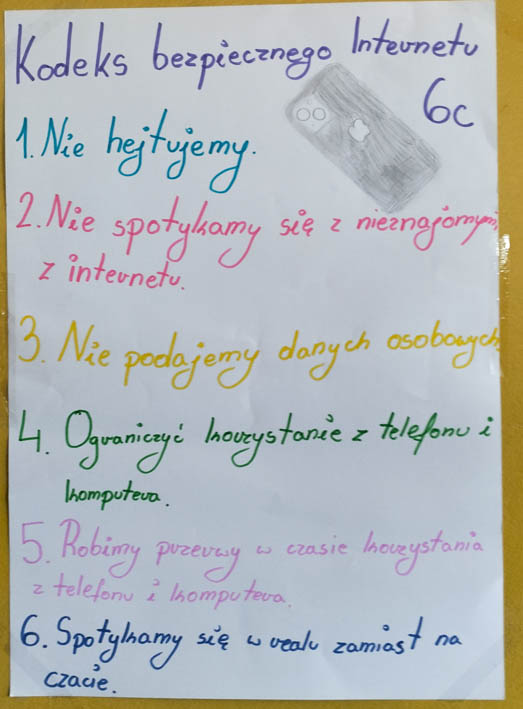 Kodeks bezpiecznego Internetu
6c
1. Nie hejtujemy.
2. Nie spotykamy się z nieznajomymi
z internetu.
3. Nie podajemy danych osobowych.
4. Ograniczyć korzystanie z telefonu i
komputera.
5. Robimy przerwy w czasie korzystania
z telefonu i komputera.
6. Spotykamy się w realu zamiast na
czacie.